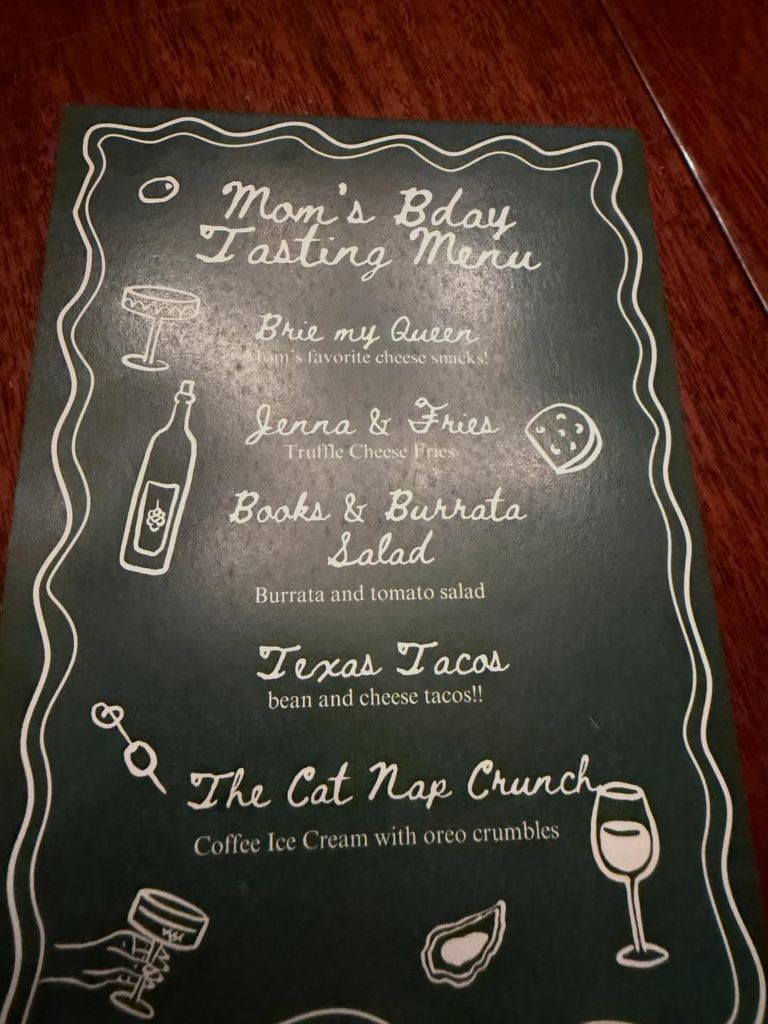 Mom's Bday
Tasting Menu
Brie my Queen
Mom's favorite cheese snacks!
Jenna & Fries
Truffle Cheese Fries
Books & Burrata
Salad
Burrata and tomato salad
Texas Tacos
bean and cheese tacos!!
The Cat Nap Crunch
Coffee Ice Cream with oreo crumbles